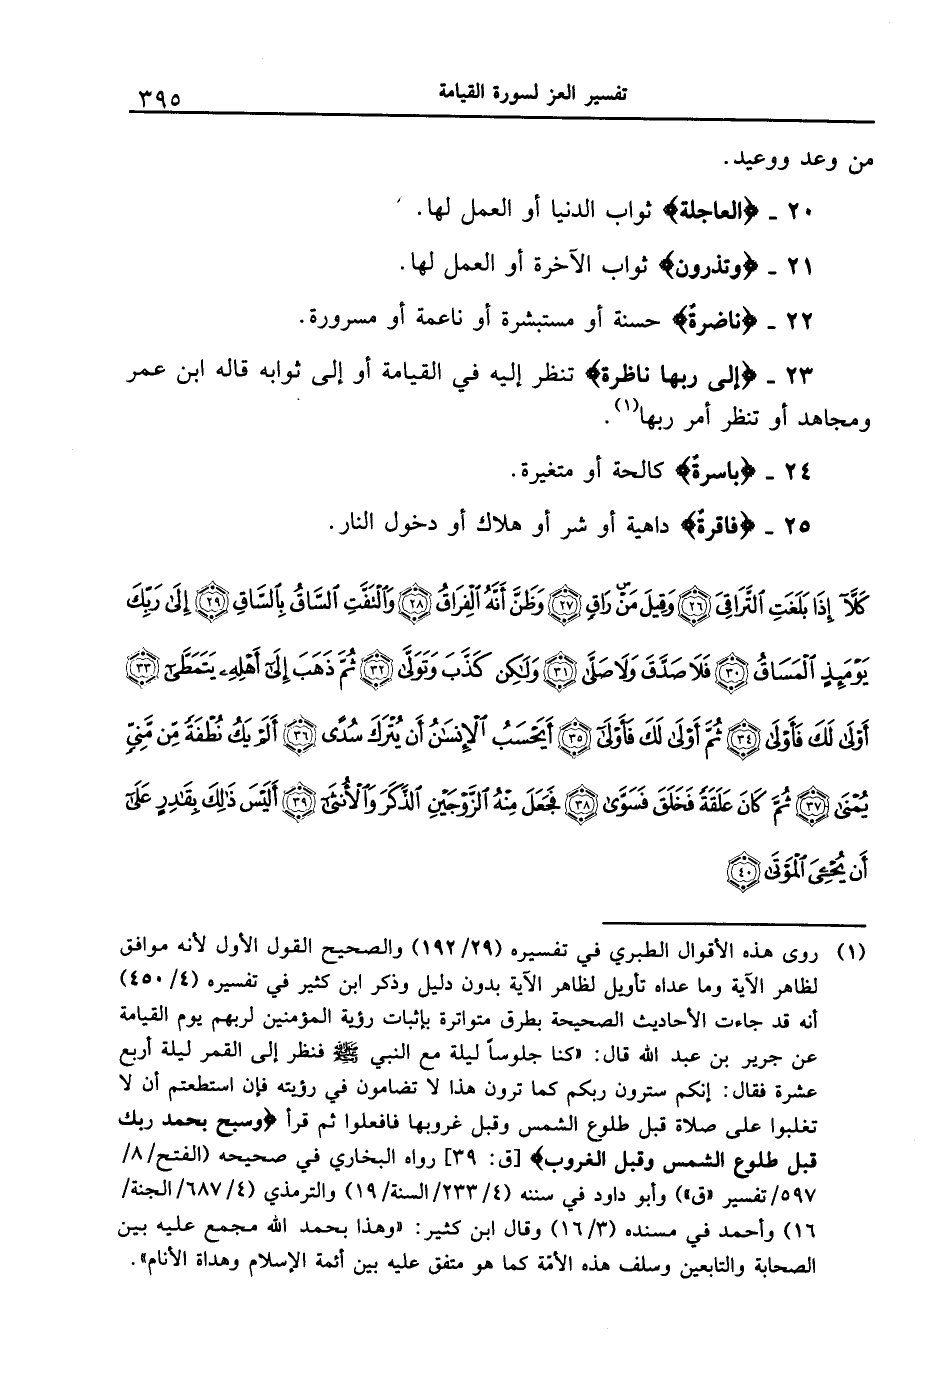 تفسير العز لسورة القيامة ٣٩٥
من وعد ووعيد.
٢٠ ـ ﴿العاجلة﴾ ثواب الدنيا أو العمل لها.
٢١ ـ ﴿وتذرون﴾ ثواب الآخرة أو العمل لها.
٢٢ ـ ﴿ناضرةٌ﴾ حسنة أو مستبشرة أو ناعمة أو مسرورة.
٢٣ ـ ﴿إلى ربها ناظرة﴾ تنظر إليه في القيامة أو إلى ثوابه قاله ابن عمر
ومجاهد أو تنظر أمر ربها(١).
٢٤ ـ ﴿باسرةٌ﴾ كالحة أو متغيرة.
٢٥ ـ ﴿فاقرةٌ﴾ داهية أو شر أو هلاك أو دخول النار.
كَلَّآ إِذَا بَلَغَتِ ٱلتَّرَاقِىَ ﴿٢٦﴾ وَقِيلَ مَنْ ۜ رَاقٍ ﴿٢٧﴾ وَظَنَّ أَنَّهُ ٱلْفِرَاقُ ﴿٢٨﴾ وَٱلْتَفَّتِ ٱلسَّاقُ بِٱلسَّاقِ ﴿٢٩﴾ إِلَىٰ رَبِّكَ
يَوْمَئِذٍ ٱلْمَسَاقُ ﴿٣٠﴾ فَلَا صَدَّقَ وَلَا صَلَّىٰ ﴿٣١﴾ وَلَٰكِن كَذَّبَ وَتَوَلَّىٰ ﴿٣٢﴾ ثُمَّ ذَهَبَ إِلَىٰٓ أَهْلِهِۦ يَتَمَطَّىٰٓ ﴿٣٣﴾
أَوْلَىٰ لَكَ فَأَوْلَىٰ ﴿٣٤﴾ ثُمَّ أَوْلَىٰ لَكَ فَأَوْلَىٰٓ ﴿٣٥﴾ أَيَحْسَبُ ٱلْإِنسَٰنُ أَن يُتْرَكَ سُدًى ﴿٣٦﴾ أَلَمْ يَكُ نُطْفَةً مِّن مَّنِىٍّ
يُمْنَىٰ ﴿٣٧﴾ ثُمَّ كَانَ عَلَقَةً فَخَلَقَ فَسَوَّىٰ ﴿٣٨﴾ فَجَعَلَ مِنْهُ ٱلزَّوْجَيْنِ ٱلذَّكَرَ وَٱلْأُنثَىٰٓ ﴿٣٩﴾ أَلَيْسَ ذَٰلِكَ بِقَٰدِرٍ عَلَىٰٓ
أَن يُحْۦِىَ ٱلْمَوْتَىٰ ﴿٤٠﴾
(١) روى هذه الأقوال الطبري في تفسيره (٢٩/ ١٩٢) والصحيح القول الأول لأنه موافق
لظاهر الآية وما عداه تأويل لظاهر الآية بدون دليل وذكر ابن كثير في تفسيره (٤/ ٤٥٠)
أنه قد جاءت الأحاديث الصحيحة بطرق متواترة بإثبات رؤية المؤمنين لربهم يوم القيامة
عن جرير بن عبد الله قال: «كنا جلوساً ليلة مع النبي ﷺ فنظر إلى القمر ليلة أربع
عشرة فقال: إنكم سترون ربكم كما ترون هذا لا تضامون في رؤيته فإن استطعتم أن لا
تغلبوا على صلاة قبل طلوع الشمس وقبل غروبها فافعلوا ثم قرأ ﴿وسبح بحمد ربك
قبل طلوع الشمس وقبل الغروب﴾ [ق: ٣٩] رواه البخاري في صحيحه (الفتح/ ٨/
٥٩٧/ تفسير «ق») وأبو داود في سننه (٤/ ٢٣٣/ السنة/ ١٩) والترمذي (٤/ ٦٨٧/ الجنة/
١٦) وأحمد في مسنده (٣/ ١٦) وقال ابن كثير: «وهذا بحمد الله مجمع عليه بين
الصحابة والتابعين وسلف هذه الأمّة كما هو متفق عليه بين أئمة الإسلام وهداة الأنام».